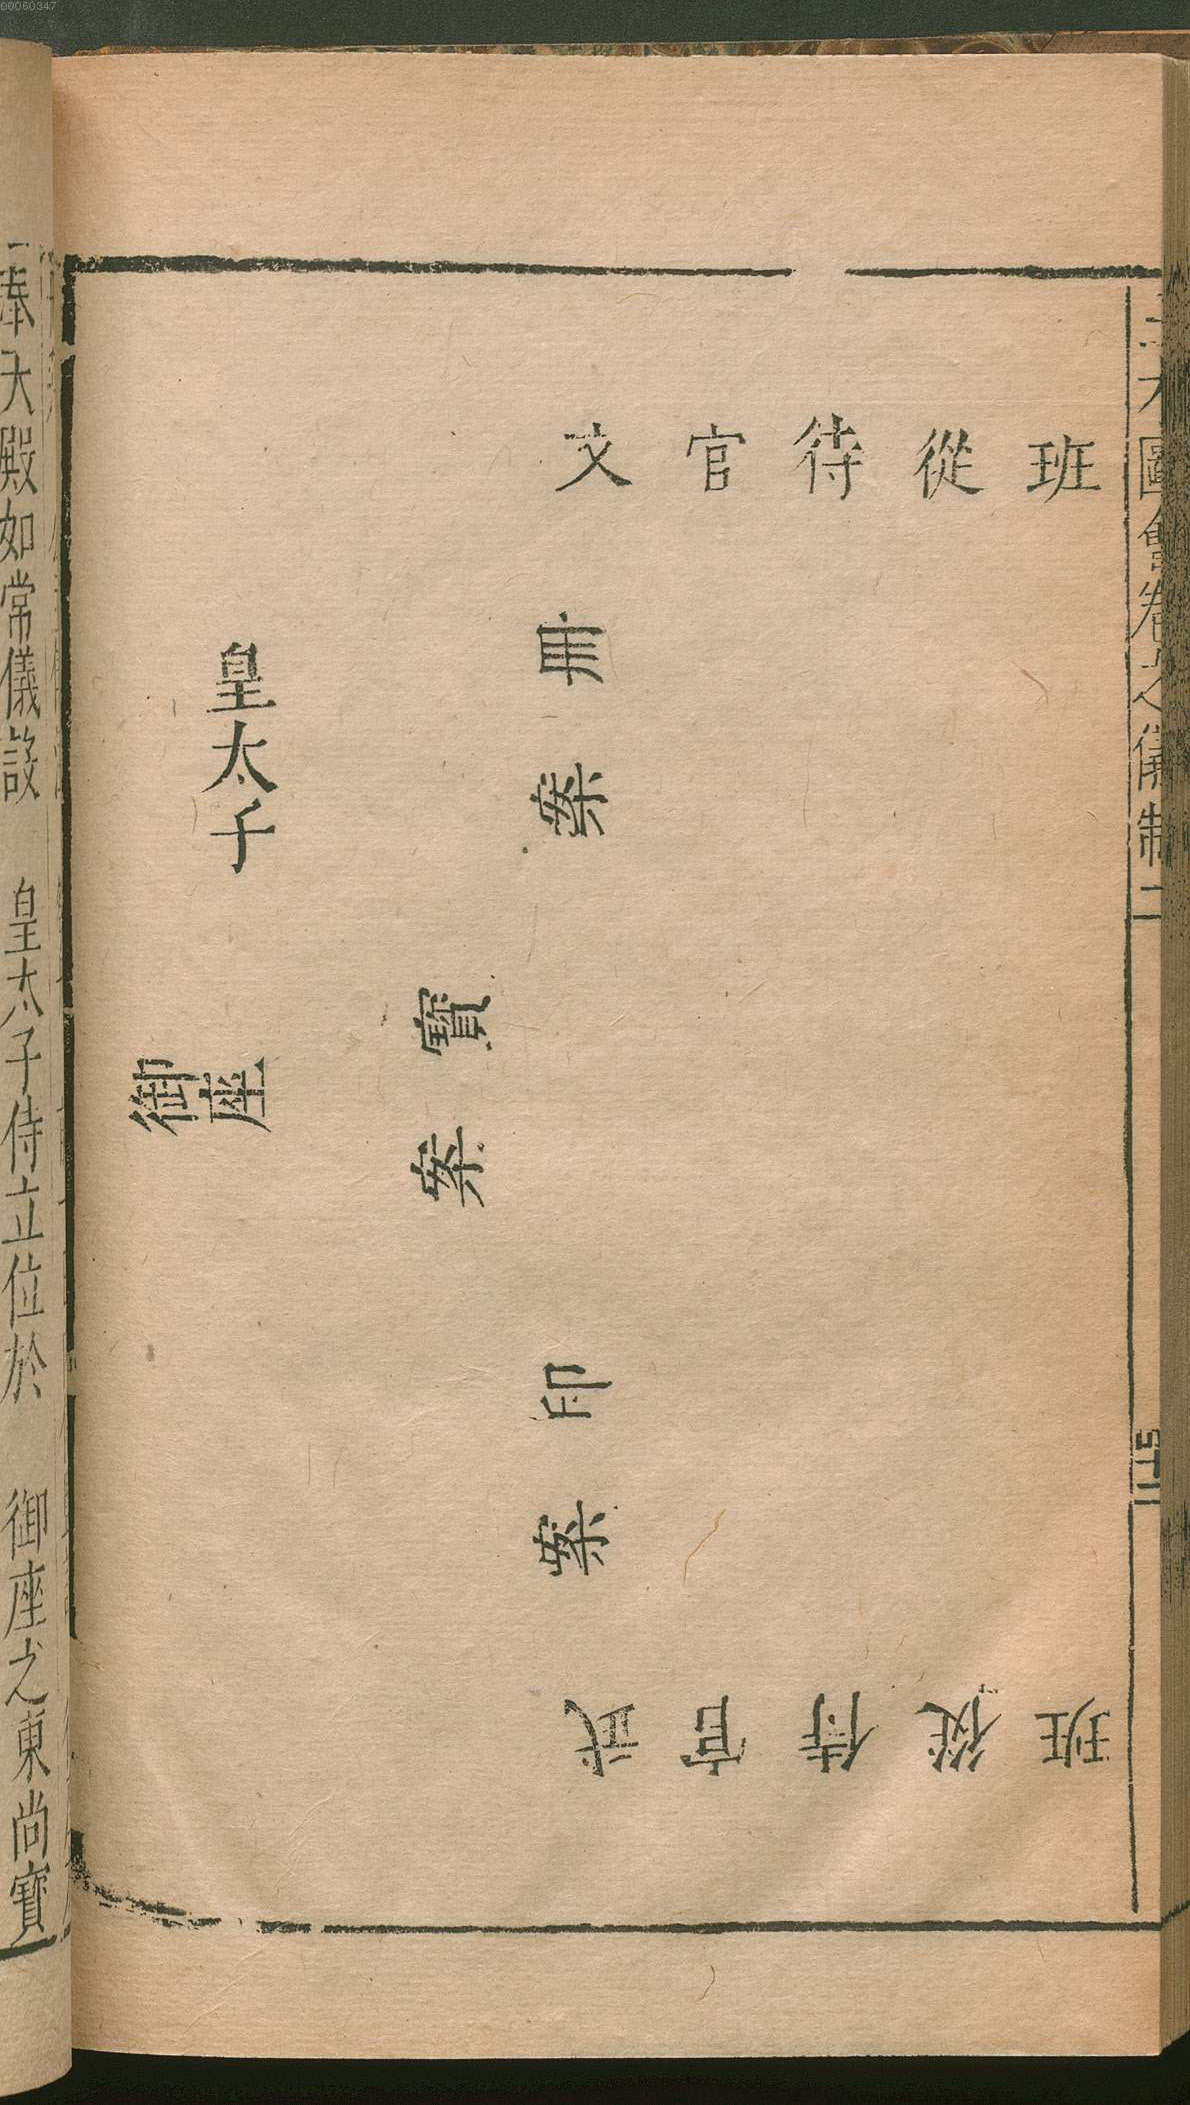 00060347
三才圖會卷之儀制二
班從待官文
冊案
皇太子
寶案
御座
印案
班從侍官武
奉天殿如常儀設 皇太子侍立位於 御座之東尚寶